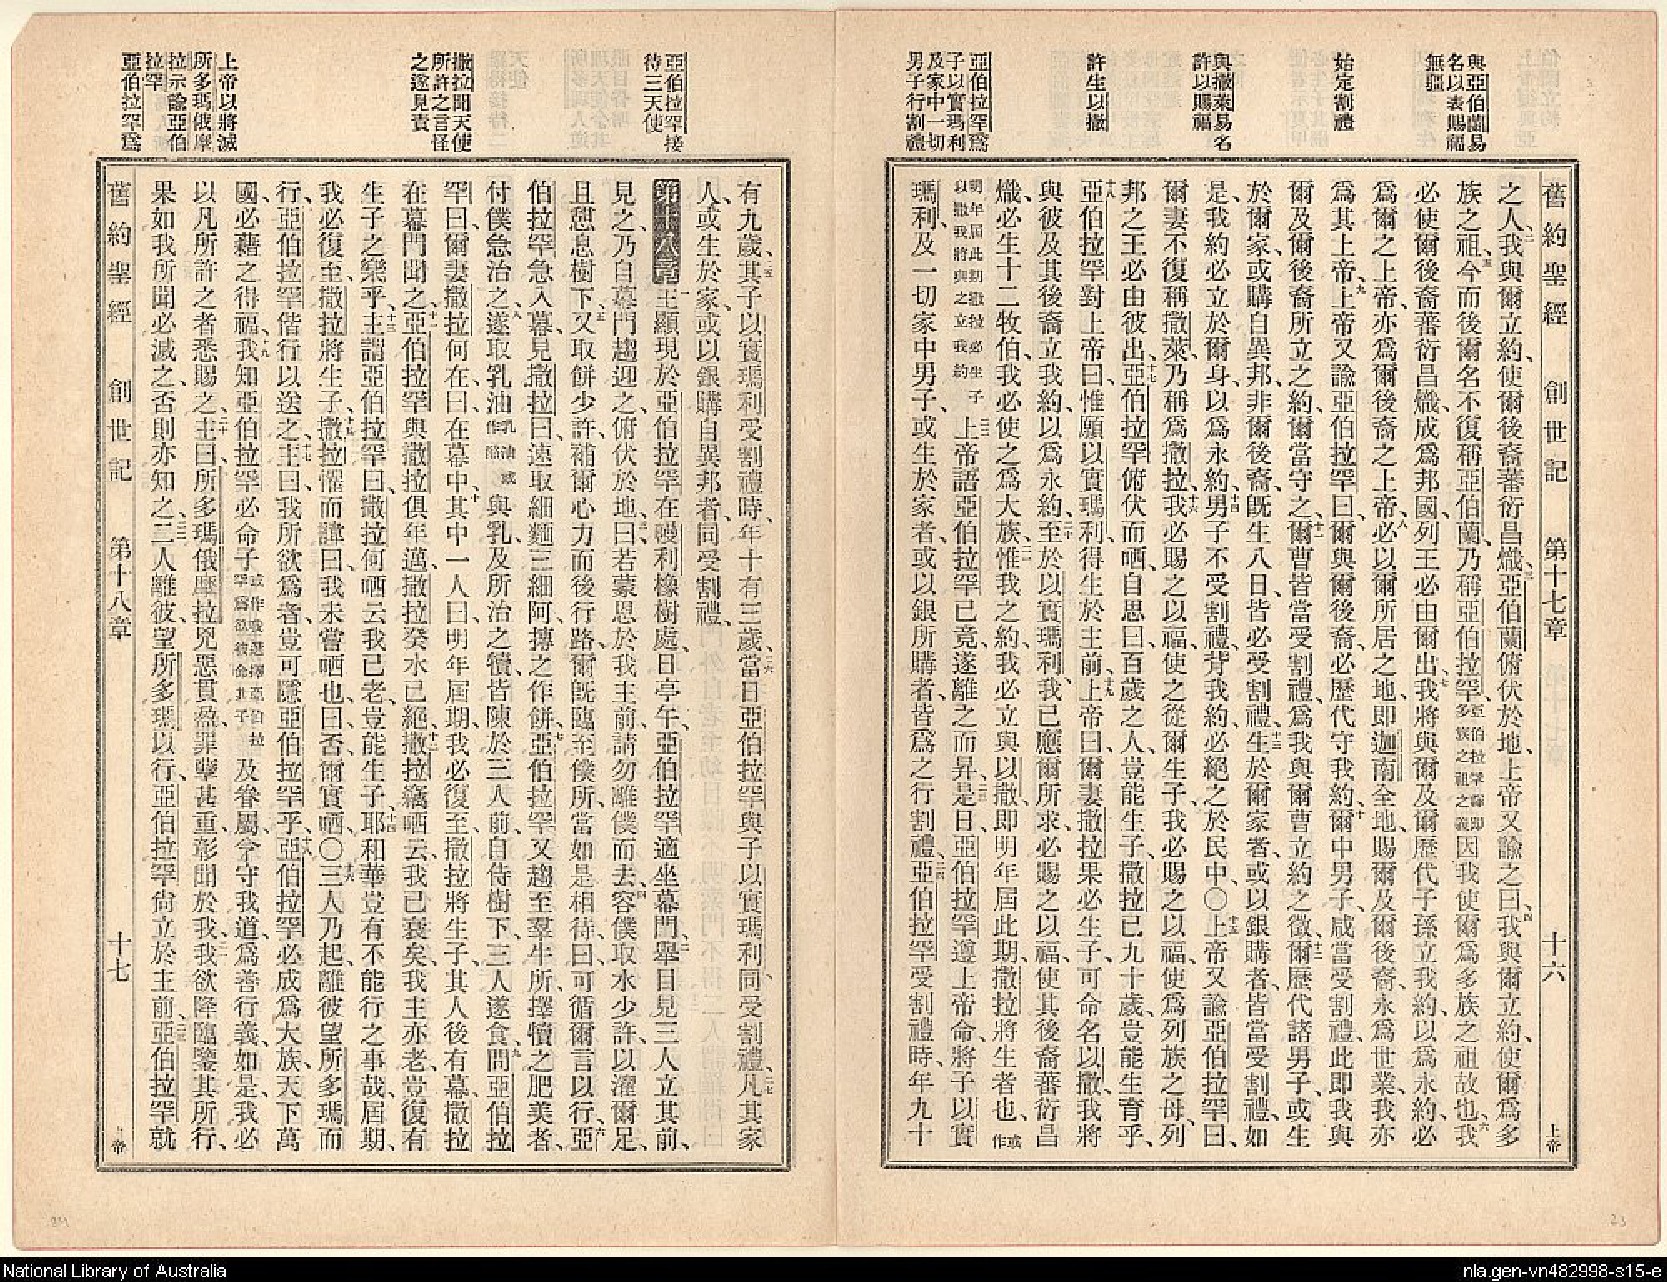 與亞伯蘭易
名以表賜福
無疆
始定割禮
與撒萊易名
許以賜福
許生以撒
亞伯拉罕爲
子以實瑪利
及家中一切
男子行割禮
舊約聖經 創世記 第十七章 十六 上帝
之人、二我與爾立約、使爾後裔蕃衍昌熾、三亞伯蘭俯伏於地、上帝又諭之曰、四我與爾立約、使爾爲多
族之祖、五今而後爾名不復稱亞伯蘭、乃稱亞伯拉罕、亞伯拉罕譯即多族之祖之義因我使爾爲多族之祖故也、六我
必使爾後裔蕃衍昌熾、成爲邦國、列王必由爾出、七我將與爾及爾歷代子孫立我約、以爲永約、必
爲爾之上帝、亦爲爾後裔之上帝、八必以爾所居之地、即迦南全地、賜爾及爾後裔、永爲世業、我亦
爲其上帝、九上帝又諭亞伯拉罕曰、爾與爾後裔、必歷代守我約、十爾中男子、咸當受割禮、此即我與
爾及爾後裔所立之約、爾當守之、十一爾曹皆當受割禮、爲我與爾曹立約之徵、十二爾歷代諸男子、或生
於爾家、或購自異邦、非爾後裔、旣生八日、皆必受割禮、十三生於爾家者、或以銀購者、皆當受割禮、如
是、我約必立於爾身、以爲永約、十四男子不受割禮、背我約、必絕之於民中、〇十五上帝又諭亞伯拉罕曰、
爾妻不復稱撒萊、乃稱爲撒拉、十六我必賜之以福、使之從爾生子、我必賜之以福、使爲列族之母、列
邦之王必由彼出、十七亞伯拉罕俯伏而哂、自思曰、百歲之人豈能生子、撒拉已九十歲、豈能生育乎、
十八亞伯拉罕對上帝曰、惟願以實瑪利得生於主前、十九上帝曰、爾妻撒拉果必生子、可命名以撒、我將
與彼及其後裔立我約、以爲永約、二十至於以實瑪利、我已應爾所求、必賜之以福、使其後裔蕃衍昌
熾、必生十二牧伯、我必使之爲大族、二一惟我之約、我必立與以撒、即明年屆此期、撒拉將生者也、或作
明年屆此期撒拉必生子以撒我將與之立我約二二上帝語亞伯拉罕已竟、遂離之而昇、二三是日亞伯拉罕遵上帝命、將子以實
瑪利、及一切家中男子、或生於家者、或以銀所購者、皆爲之行割禮、二四亞伯拉罕受割禮時、年九十
亞伯拉罕接
待三天使
撒拉聞天使
所許之言怪
之遂見責
上帝以將滅
所多瑪俄摩
拉示諭亞伯
拉罕
亞伯拉罕爲
有九歲、二五其子以實瑪利受割禮時、年十有三歲、二六當日亞伯拉罕與子以實瑪利、同受割禮、二七凡其家
人、或生於家、或以銀購自異邦者、同受割禮、
第十八章 主顯現於亞伯拉罕、在幔利橡樹處、日亭午、亞伯拉罕適坐幕門、二舉目見三人立其前、
見之乃自幕門趨迎之、俯伏於地、三曰、若蒙恩於我主前、請勿離僕而去、四容僕取水少許、以濯爾足、
且憩息樹下、五又取餅少許、補爾心力、而後行路、爾旣臨至僕所、當如是相待、曰、可循爾言以行、六亞
伯拉罕急入幕見撒拉曰、速取細麵三細阿、摶之作餅、七亞伯拉罕又趨至羣牛所、擇犢之肥美者、
付僕急治之、八遂取乳油乳油或作酪與乳及所治之犢、皆陳於三人前、自侍樹下、三人遂食、九問亞伯拉
罕曰、爾妻撒拉何在、曰、在幕中、十其中一人曰、明年屆期、我必復至、撒拉將生子、其人後有幕、撒拉
在幕門聞之、十一亞伯拉罕與撒拉俱年邁、撒拉癸水已絕、十二撒拉竊哂云、我已衰矣、我主亦老、豈復有
生子之樂乎、十三主謂亞伯拉罕曰、撒拉何哂云、我已老、豈能生子、十四耶和華豈有不能行之事哉、屆期、
我必復至、撒拉將生子、十五撒拉懼而諱曰、我未嘗哂也、曰、否、爾實哂、〇十六三人乃起、離彼望所多瑪而
行、亞伯拉罕偕行以送之、十七主曰、我所欲爲者、豈可隱亞伯拉罕乎、十八亞伯拉罕必成爲大族、天下萬
國必藉之得福、十九我知亞伯拉罕必命子或作我選擇亞伯拉罕爲欲彼命其子及眷屬、令守我道、爲善行義、如是、我必
以凡所許之者悉賜之、二十主曰、所多瑪俄摩拉兇惡貫盈、罪孽甚重、彰聞於我、二一我欲降臨鑒其所行、
果如我所聞、必滅之、否則亦知之、二二三人離彼、望所多瑪以行、亞伯拉罕尙立於主前、二三亞伯拉罕就
舊約聖經 創世記 第十八章 十七 上帝
National Library of Australia
nla.gen-vn482998-s15-e